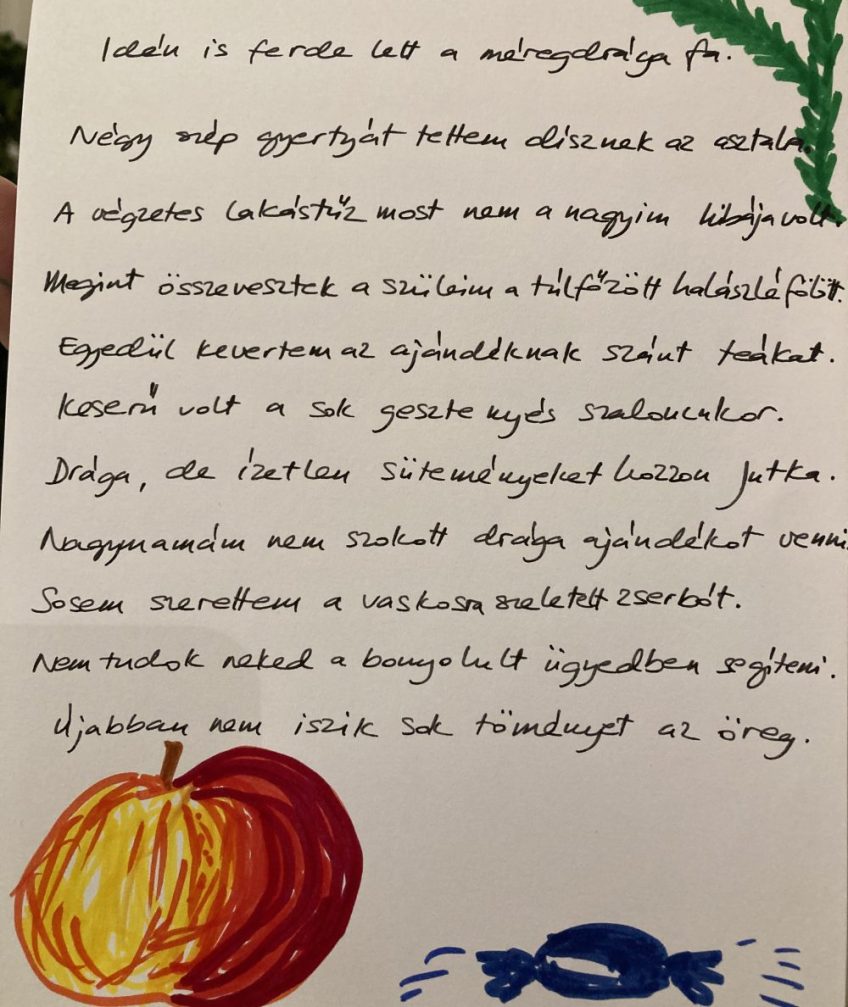 Idén is ferde lett a méregdrága fa.
Négy szép gyertyát tettem dísznek az asztalra.
A végzetes lakástűz most nem a nagyim hibája volt.
Megint összevesztek a szüleim a túlfőzött halászlé fölött.
Egyedül kevertem az ajándéknak szánt teákat.
Keserű volt a sok gesztenyés szaloncukor.
Drága, de ízetlen süteményeket hozzon Jutka.
Nagymamám nem szokott drága ajándékot venni.
Sosem szerettem a vaskosra szeletelt zserbót.
Nem tudok neked a bonyolult ügyedben segíteni.
Újabban nem iszik sok töményet az öreg.